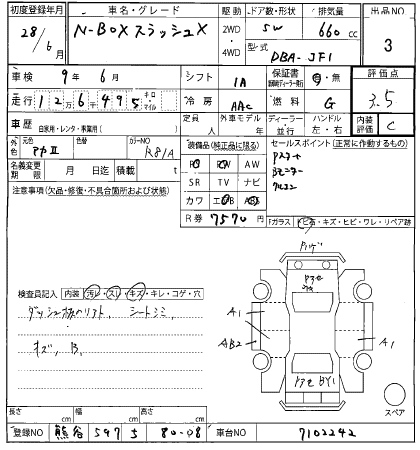 初度登録年月 車名・グレード 駆動 ドア数・形状 排気量 出品NO
28/6月 N-BOXスラッシュX 2WD 4WD 5W 660cc 3
型式 DBA-JF1
車検 9年 6月 シフト IA 保証書 有・無 評価点
走行 126495 キロ マイル 冷房 AAC 燃料 G 3.5
車歴 自家用・レンタ・事業用( ) 定員 人 外車モデル 年 ディーラー・並行 ハンドル 左・右 内装評価 C
外色 元色 アカII 色替 カラーNO R81A 装備品(純正品に限る) セールスポイント(正常に作動するもの)
名義変更期限 月 日迄 積載 t PS PW AW Pスタート
SR TV ナビ Bモニター
注意事項(欠品・修復・不具合箇所および状態) カワ エアB ABS
R券 7570円 Fガラス 飛石・キズ・ヒビ・ワレ・リペア跡
検査員記入 内装 汚レ・スレ・キズ・キレ・コゲ・穴
ダッシュ板のリフト、 シートシミ
キズ、B
A1
AB2
A1
スペア
長さ cm 幅 cm 高さ cm
登録NO 熊谷 597 す 80-08 車台NO 7102242